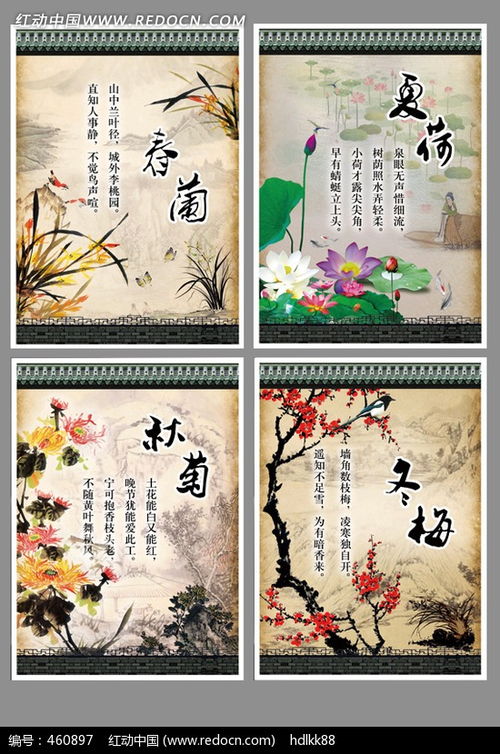 红动中国 www.redocn.com
红动中国 WWW.REDOCN.COM
山中兰叶径，城外李桃园。
直知人事静，不觉鸟声喧。
春蘭
夏荷
泉眼无声惜细流，
树荫照水弄轻柔。
小荷才露尖尖角，
早有蜻蜓立上头。
秋菊
土花能白又能红，
晚节犹能爱此工。
宁可抱香枝头老，
不随黄叶舞秋风。
冬梅
墙角数枝梅，凌寒独自开。
遥知不足雪，为有暗香来。
编号：460897 红动中国 (www.redocn.com) hdlkk88